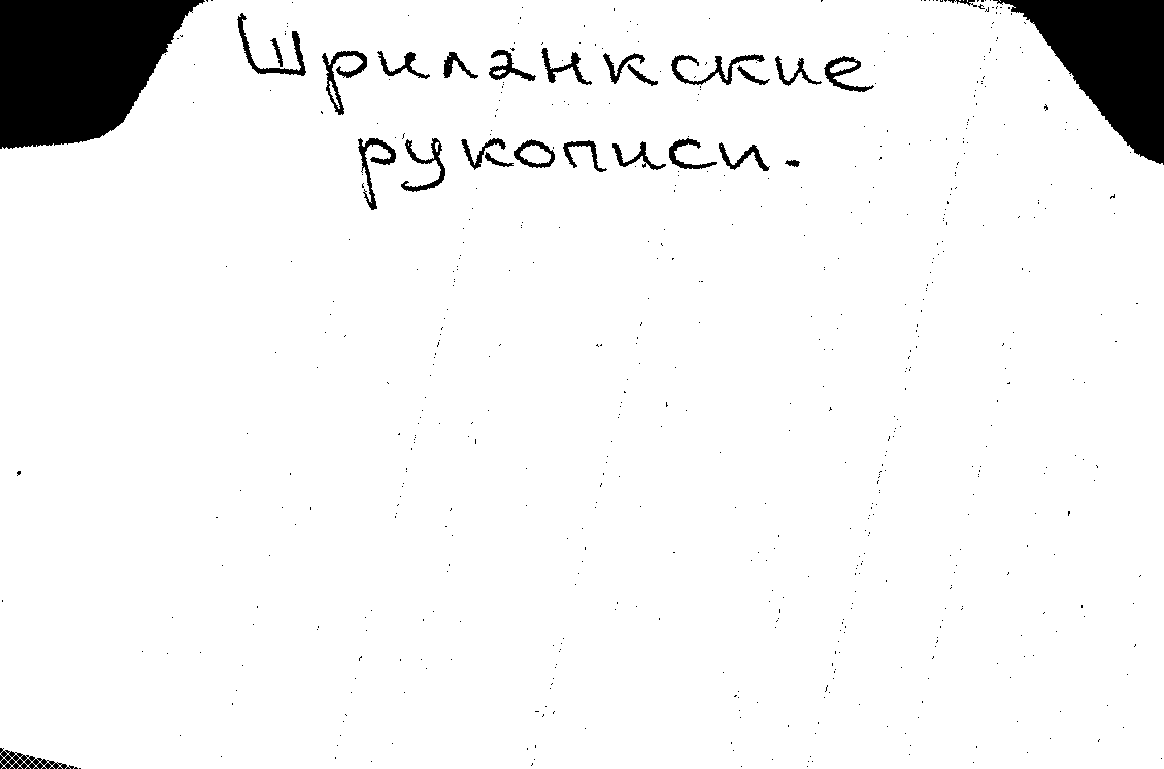 Шриланкские
рукописи.